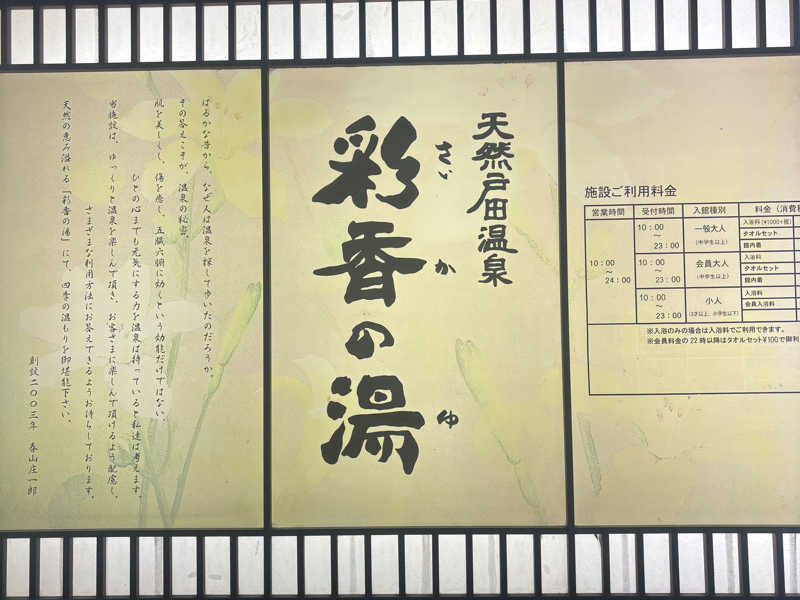 天然戸田温泉
さい か ゆ
彩香の湯
はるかな昔から、なぜ人は温泉を探して歩いたのだろうか。
その答えこそが、温泉の秘密。
肌を美しくし、傷を癒し、五臓六腑に効くという効能だけではない、
ひとの心までも元気にする力を温泉は持っていると私達は考えます。
当施設は、ゆっくりと温泉を楽しんで頂き、お客さまに楽しんで頂けるよう配慮し、
さまざまな利用方法にお答えできるようお待ちしております。
天然の恵み溢れる「彩香の湯」にて、四季の温もりを御堪能下さい。
創設二〇〇三年 春山庄一郎
施設ご利用料金
営業時間 受付時間 入館種別 料金(消費税
10:00〜24:00
10:00〜23:00 一般大人 (中学生以上)
入浴料(¥1000+税)
タオルセット
館内着
10:00〜23:00 会員大人 (中学生以上)
入浴料
タオルセット
館内着
10:00〜23:00 小人 (3才以上、小学生以下)
入浴料
会員入浴料
※入浴のみの場合は入浴料でご利用できます。
※会員料金の22時以降はタオルセット¥100で御利